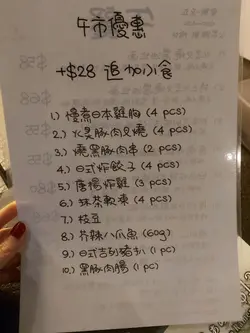 午市優惠
+$28 追加小食
1.) 慢煮日本雞胸 (4 pcs)
2.) 水晶豚肉叉燒 (4 pcs)
3.) 燒黑豚肉串 (2 pcs)
4.) 日式炸餃子 (4 pcs)
5.) 唐揚炸雞 (3 pcs)
6.) 抹茶軟凍 (4 pcs)
7.) 枝豆
8.) 芥辣八爪魚 (60g)
9.) 日式吉列豬扒 (1 pc)
10.) 黑豚肉腸 (1 pc)